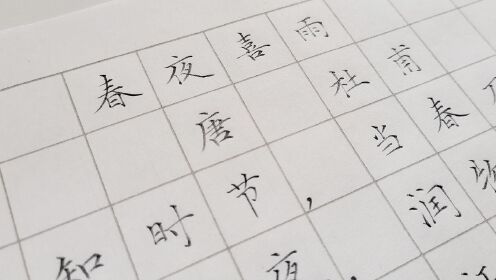 春夜喜雨
唐 杜甫
知时节，当春
夜，润